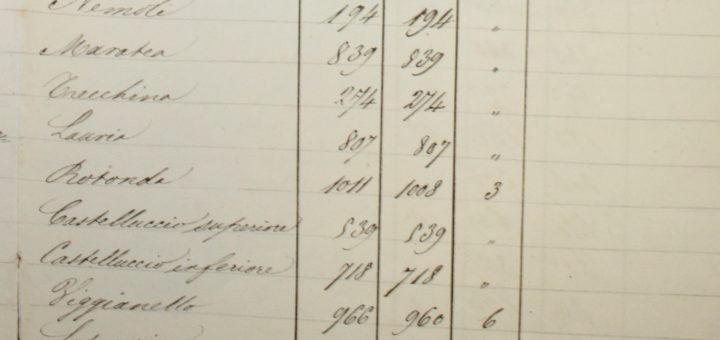 Nemoli 194 194 "
Maratea 839 839 "
Trecchina 274 274 "
Lauria 807 807 "
Rotonda 1011 1008 3
Castelluccio superiore 539 539 "
Castelluccio inferiore 718 718 "
Viggianello 966 960 6